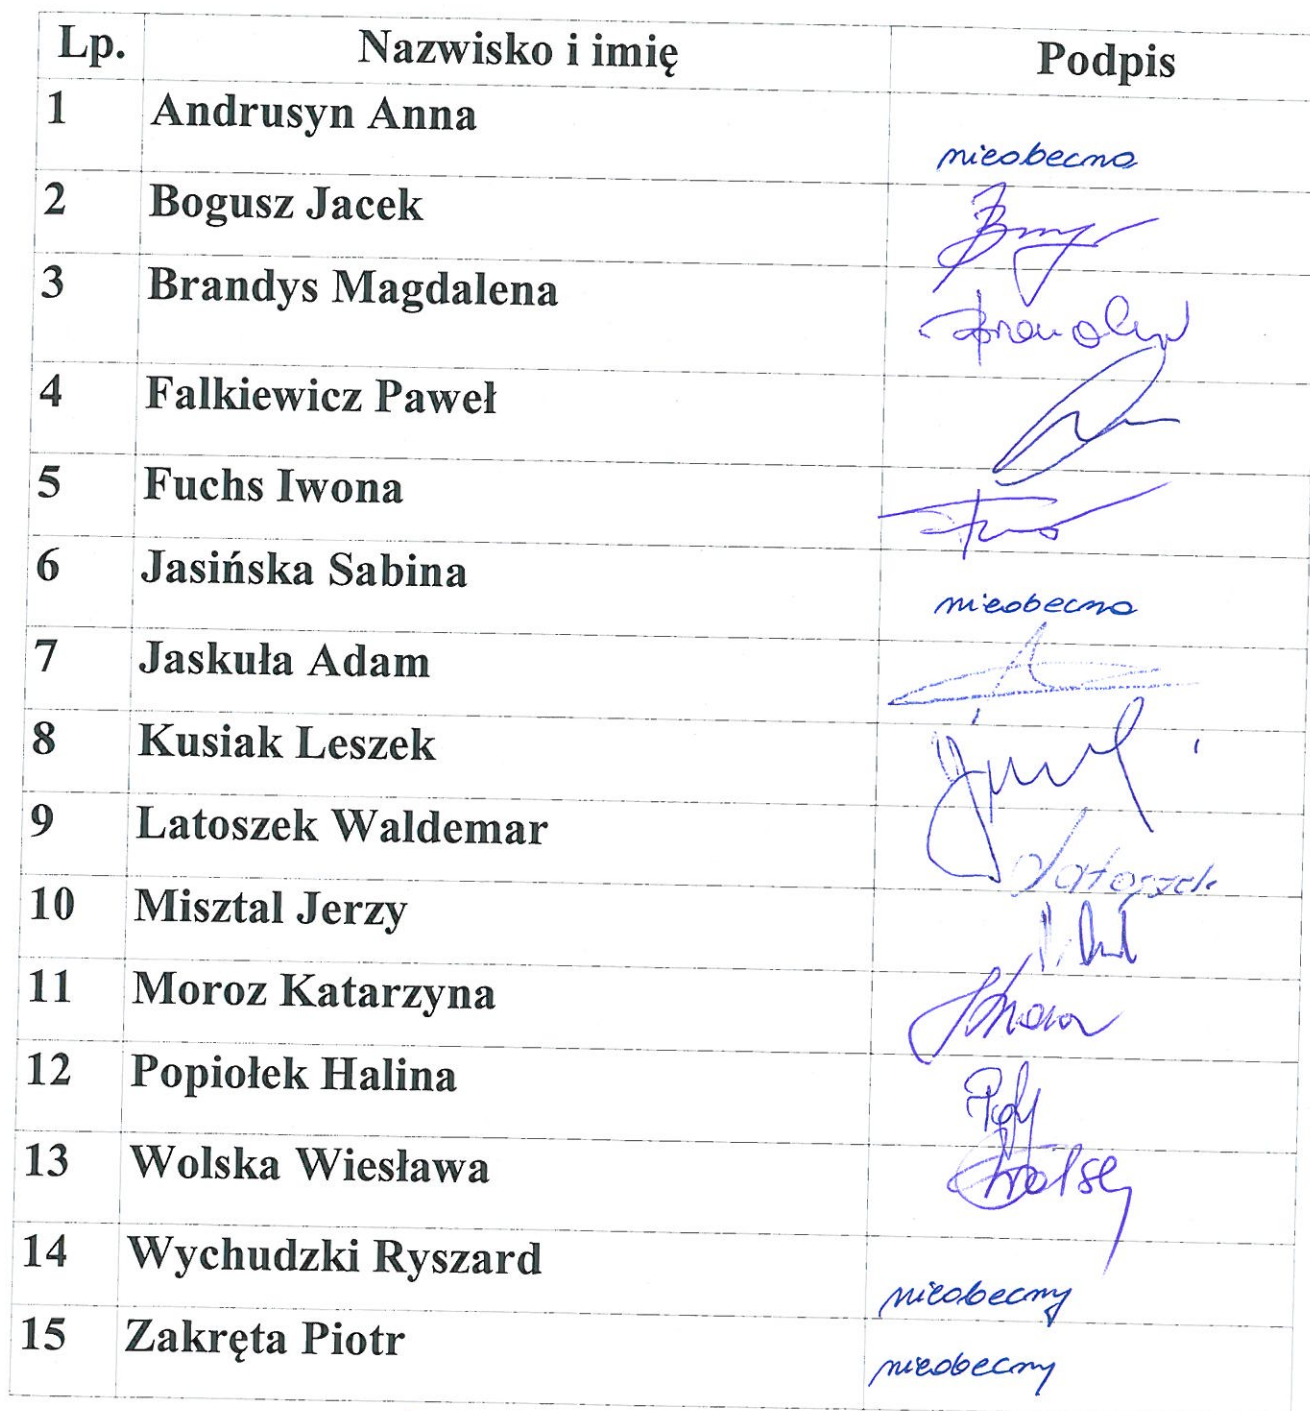 Lp. Nazwisko i imię Podpis
1 Andrusyn Anna nieobecna
2 Bogusz Jacek
3 Brandys Magdalena
4 Falkiewicz Paweł
5 Fuchs Iwona
6 Jasińska Sabina nieobecna
7 Jaskuła Adam
8 Kusiak Leszek
9 Latoszek Waldemar Latoszek
10 Misztal Jerzy
11 Moroz Katarzyna
12 Popiołek Halina
13 Wolska Wiesława
14 Wychudzki Ryszard nieobecny
15 Zakręta Piotr nieobecny